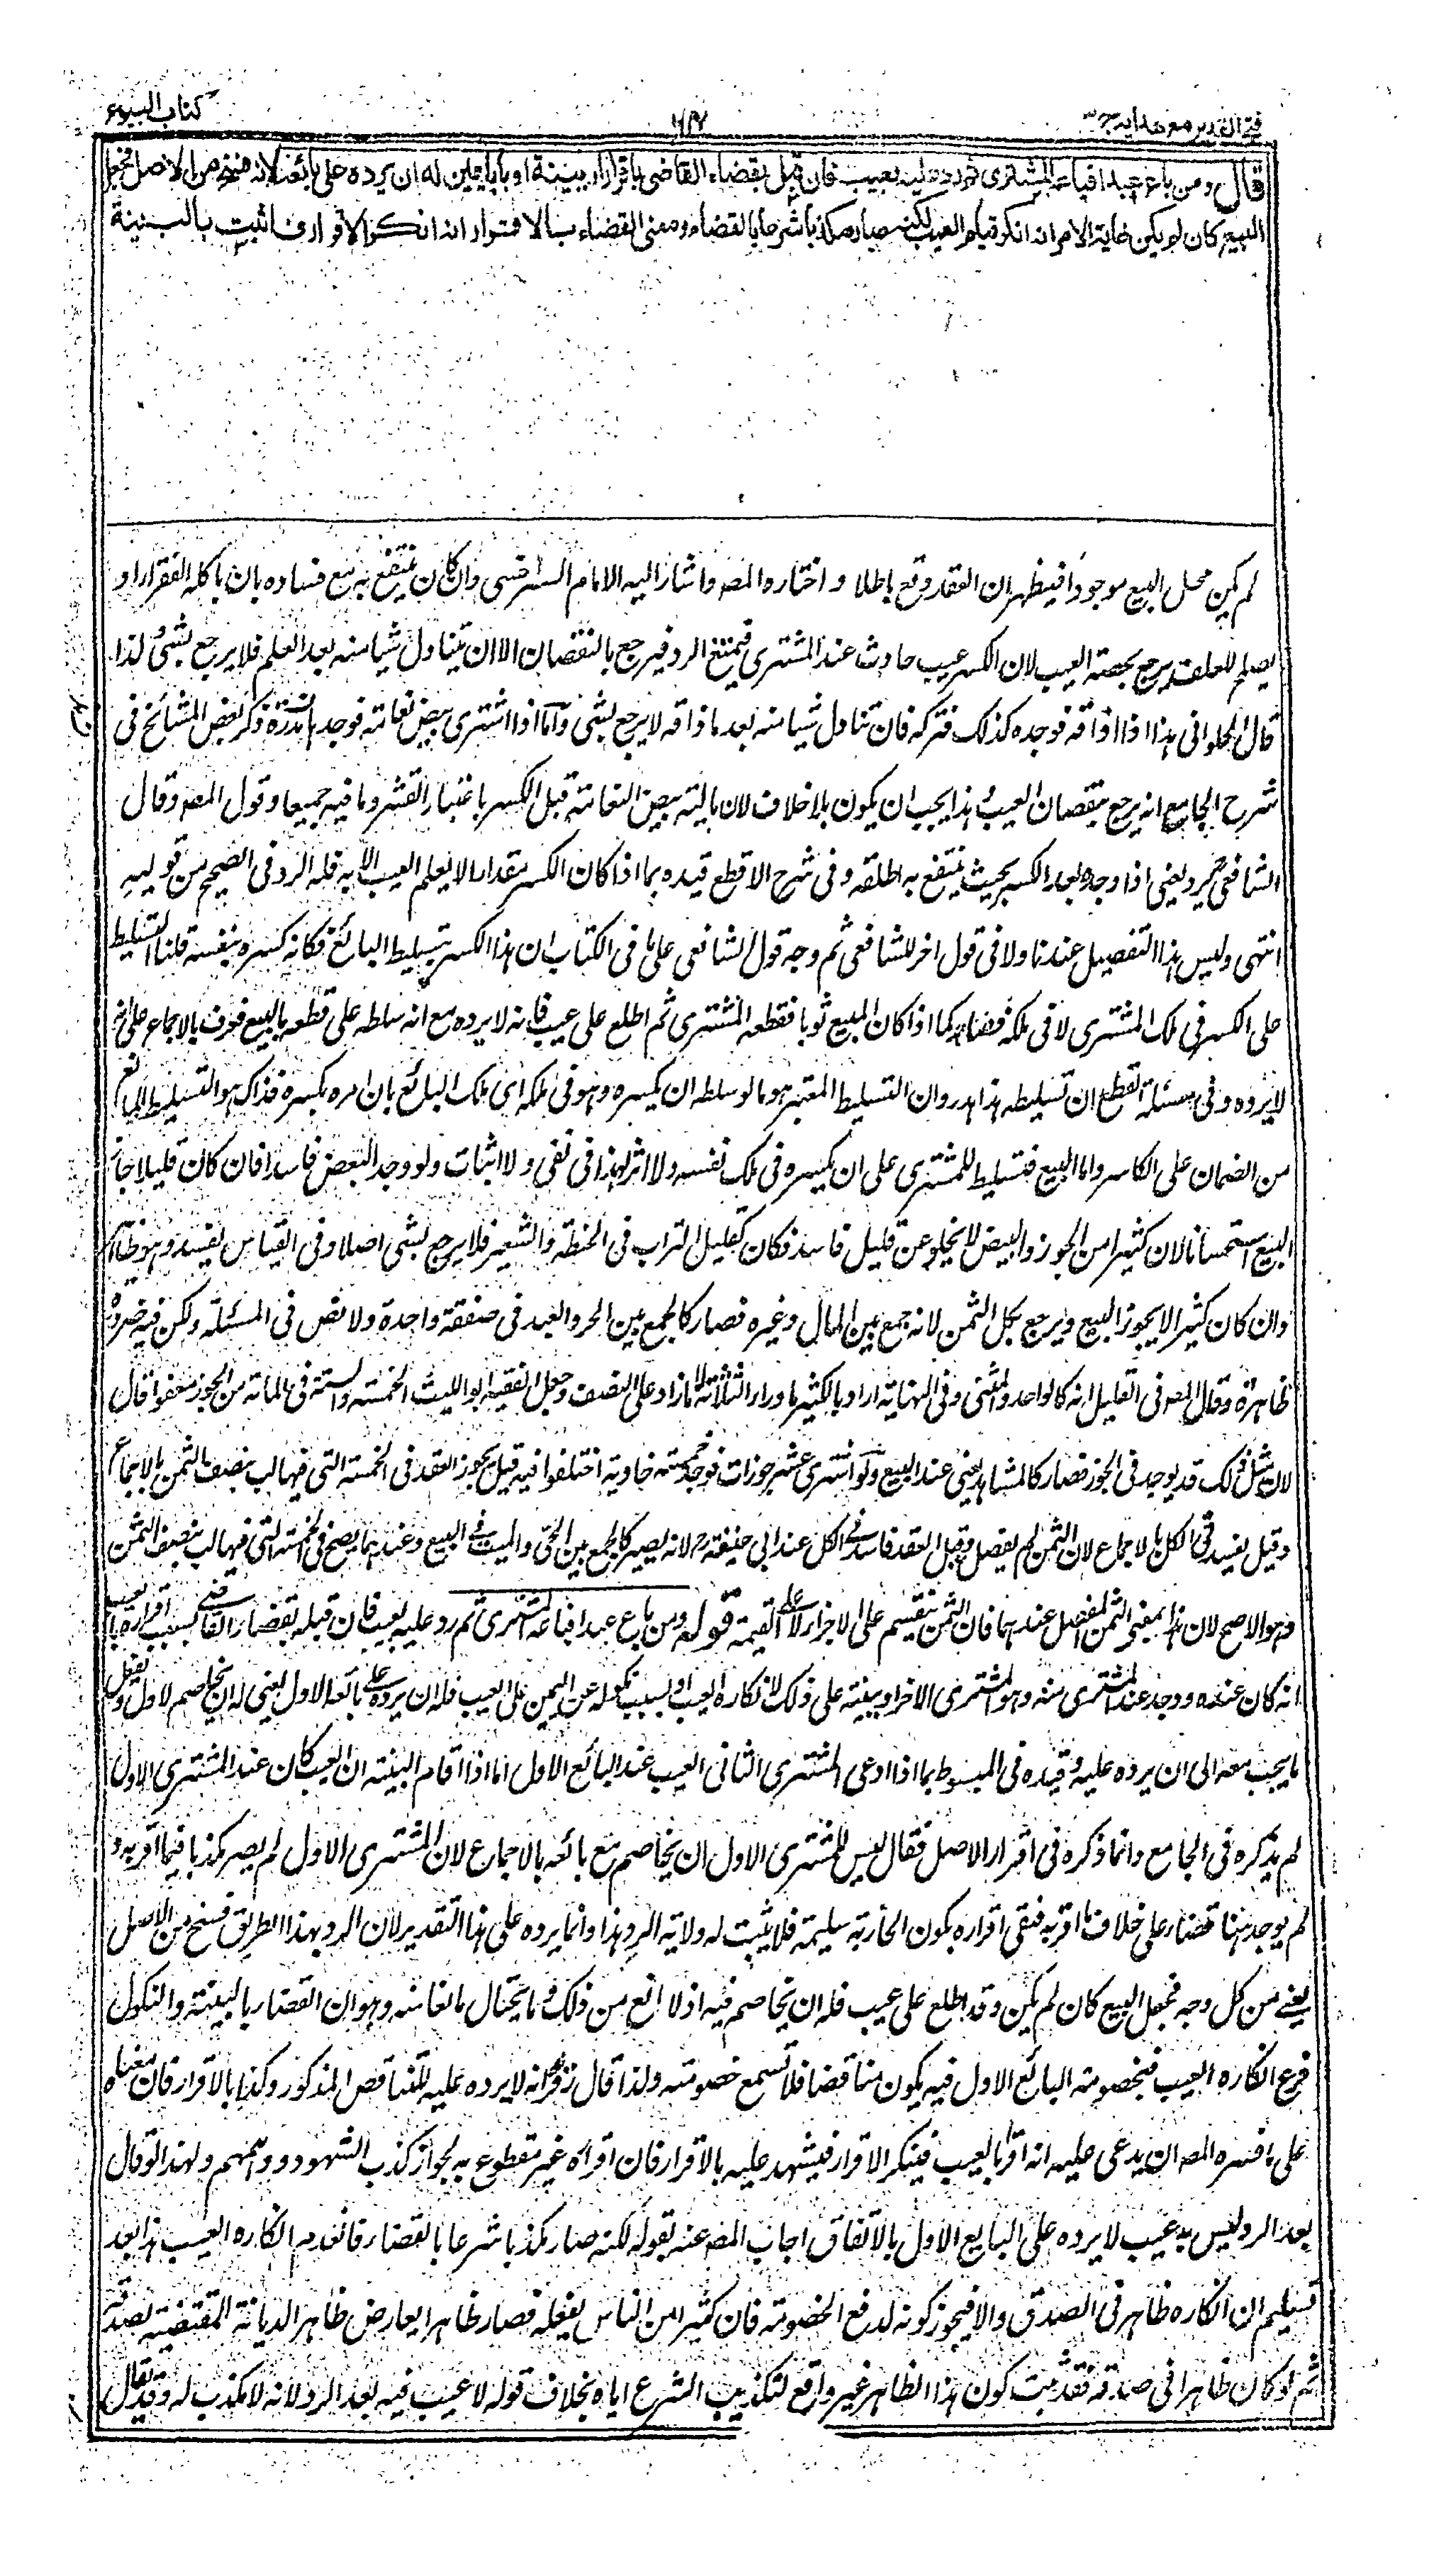 فتح القدير مع هدايه ج ٣
كتاب البيوع
قال ومن باع عبدا فباعه المشترى ثم رد عليه بعيب فان قبل بقضاء القاضى باقرار او ببينة او بأباء يمين له ان يرده على بائعه لانه فسخ من الاصل فجعل
البيع كان لم يكن غاية الامر انه انكر قيام العيب لكنه صار مكذبا شرعا بالقضاء ومعنى القضاء بالاقرار انه انكر الاقرار فاثبت بالبينة
لم يكن محل البيع موجودا فيظهر ان العقد وقع باطلا و اختاره المصـ واشار اليه الامام السرخسى وان كان ينتفع به مع فساده بان ياكله الفقراء او
يصلح للعلف يرجع بحصة العيب لان الكسر عيب حادث عند المشترى فيمتنع الرد فيرجع بالنقصان الا ان يتناول شيا منه بعد العلم فلا يرجع بشئ لذا
قال الحلوانى هذا اذا ذاقه فوجده كذلك فتركه فان تناول شيا منه بعد ما ذاقه لا يرجع بشئ واما اذا اشترى بيض نعامة فوجد ها مذرة ذكر بعض المشائخ فى
شرح الجامع انه يرجع بنقصان العيب و هذا يجب ان يكون بلا خلاف لان مالية بيض النعامة قبل الكسر باعتبار القشر وما فيه جميعا وقول المصـ وقال
الشافعى يرده يعنى اذا وجده بعد الكسر بحيث ينتفع به اطلقه و فى شرح الاقطع قيده بما اذا كان الكسر مقدارا لا يعلم العيب الا به فله الرد فى الصحيح من قوليه
انتهى وليس هذا التفصيل عندنا ولا فى قول اخر للشافعى ثم وجه قول الشافعى على ما فى الكتاب ان هذا الكسر بتسليط البائع فكانه كسره بنفسه قلنا التسليط
على الكسر فى ملك المشترى لا فى ملكه فصار كما اذا كان المبيع ثوبا فقطعه المشترى ثم اطلع على عيب فانه لا يرده مع انه سلطه على قطعه بالبيع فعرف بالاجماع على انه
لا يرده و فى مسئلة القطع ان تسليطه هذا هدر وان التسليط المعتبر هو ما لو سلطه ان يكسره و هو فى ملكه اى ملك البائع بان امره بكسره فذاك هو التسليط المانع
من الضمان على الكاسر واما البيع فتسليط للمشترى على ان يكسره فى ملك نفسه ولا اثر لهذا فى نفى و لا اثبات ولو وجد البعض فاسدا فان كان قليلا جاز
البيع استحسانا لان كثيرا من الجوز والبيض لا يخلو عن قليل فاسد فكان كقليل التراب فى الحنطة والشعير فلا يرجع بشئ اصلا وفى القياس يفسد وهو ظاهر
وان كان كثيرا لا يجوز البيع ويرجع بكل الثمن لانه جمع بين المال وغيره فصار كالجمع بين الحر والعبد فى صفقة واحدة ولا نص فى المسئلة ولكن فيه ضرورة
ظاهرة وقال المصـ فى القليل انه كالواحد والمثنى وفى النهاية اراد بالكثير ما وراء الثلثة لا ما زاد على النصف وجعل الفقيه ابو الليث الخمسة والستة فى المائة من الجوز عفوا قال
لان مثل ذلك قد يوجد فى الجوز فصار كالمشاهد يعنى عند البيع ولو اشترى عشر جوزات فوجد خمسة خاوية اختلفوا فيه قيل يجوز العقد فى الخمسة التى فيها لب بنصف الثمن بالاجماع
وقيل يفسد فى الكل بالاجماع لان الثمن لم يفصل وقيل العقد فاسد فى الكل عند ابى حنيفة رح لانه يصير كالجمع بين الحى والميت فى البيع وعندهما يصح فى الخمسة التى فيها لب بنصف الثمن
وهو الاصح لان هذا بمعنى الثمن المفصل عندهما فان الثمن ينقسم على الاجزاء لا على القيمة قوله ومن باع عبدا فباعه المشترى ثم رد عليه بعيب فان قبله بقضاء القاضى بسبب اقراره بالعيب
انه كان عنده ووجد عند المشترى منه وهو المشترى الاخر او ببينة على ذلك لانكاره العيب او بسبب نكوله عن اليمين على العيب فله ان يرده على بائعه الاول يعنى له ان يخاصم الاول ويفعل
ما يجب معه الى ان يرده عليه وقيده فى المبسوط بما اذا ادعى المشترى الثانى العيب عند البائع الاول اما اذا اقام البينة ان العيب كان عند المشترى الاول
لم يذكره فى الجامع وانما ذكره فى اقرار الاصل فقال ليس للمشترى الاول ان يخاصم مع بائعه بالاجماع لان المشترى الاول لم يصر مكذبا فيما اقر به و
لم يوجد هنا قضاء على خلاف ما اقر به فبقى اقراره بكون الجارية سليمة فلا يثبت له ولاية الرد هذا وانما يرده على هذا التقدير لان الرد بهذا الطريق فسخ من الاصل
يعنى من كل وجه فجعل البيع كان لم يكن وقد اطلع على عيب فله ان يخاصم فيه اذ لا مانع من ذلك و ما يتخال مانعا منه وهو ان القضاء بالبينة والنكول
فرع انكاره العيب فبخصومته البائع الاول فيه يكون مناقضا فلا تسمع خصومته ولذا قال زفر انه لا يرده عليه للتناقض المذكور وكذا بالاقرار فان معناه
على ما فسره المصـ ان يدعى عليه انه اقر بالعيب فينكر الاقرار فيشهد عليه بالاقرار فان اقراره غير مقطوع به لجواز كذب الشهود ووهمهم ولهذا لو قال
بعد الرد ليس به عيب لا يرده على البايع الاول بالاتفاق اجاب المصـ عنه بقوله لكنه صار مكذبا شرعا بالقضاء فانعدم انكاره العيب هذا بعد
تسليم ان انكاره ظاهر فى الصدق والا فيجوز كونه لدفع الخصومة فان كثيرا من الناس يفعله فصار ظاهرا يعارض ظاهر الديانة المقتضية لصدقه
ثم لو كان ظاهرا فى صدقه فقد ثبت كون هذا الظاهر غير واقع لتكذيب الشرع اياه بخلاف قوله لا عيب فيه بعد الرد لانه لا مكذب له وقد يقال